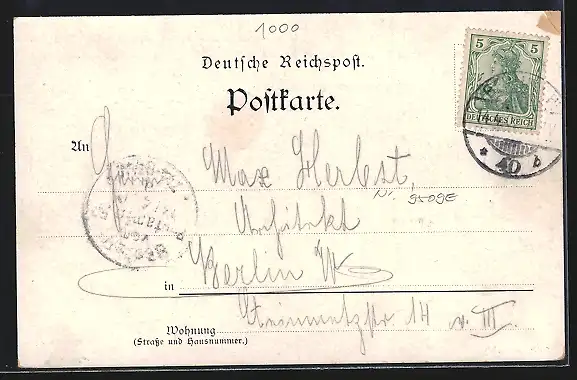 1000
Deutsche Reichspost.
Postkarte.
5 5
DEUTSCHES REICH
* 40 b
An
Max Herbst,
Nr. 9509E
Architekt
in Berlin W
Steinmetzstr. 14 v. III.
Wohnung
(Straße und Hausnummer.)